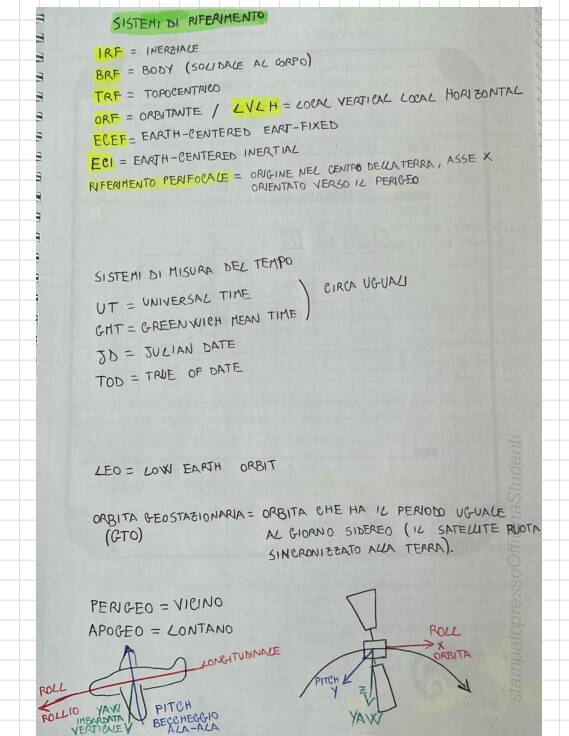 SISTEMI DI RIFERIMENTO
IRF = INERZIALE
BRF = BODY (SOLIDALE AL CORPO)
TRF = TOPOCENTRICO
ORF = ORBITANTE / LVLH = LOCAL VERTICAL LOCAL HORIZONTAL
ECEF = EARTH-CENTERED EART-FIXED
ECI = EARTH-CENTERED INERTIAL
RIFERIMENTO PERIFOCALE = ORIGINE NEL CENTRO DELLA TERRA, ASSE X
ORIENTATO VERSO IL PERIGEO
SISTEMI DI MISURA DEL TEMPO
UT = UNIVERSAL TIME
GMT = GREENWICH MEAN TIME
CIRCA UGUALI
JD = JULIAN DATE
TOD = TRUE OF DATE
LEO = LOW EARTH ORBIT
ORBITA GEOSTAZIONARIA = ORBITA CHE HA IL PERIODO UGUALE
(GTO) AL GIORNO SIDEREO (IL SATELLITE RUOTA
SINCRONIZZATO ALLA TERRA).
PERIGEO = VICINO
APOGEO = LONTANO
LONGITUDINALE
ROLL
ROLLIO
YAW
IMBARDATA
VERTICALE
PITCH
BECCHEGGIO
ALA-ALA
ROLL
X
ORBITA
PITCH
Y
Z
YAW
stampatopressoOfficinaStudenti